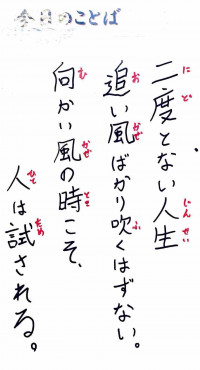 今日のことば
二度とない人生、
追い風ばかり吹くはずない。
向かい風の時こそ、
人は試される。
にど
じんせい
おかぜ
ふ
むかぜ
とき
ひと
ため